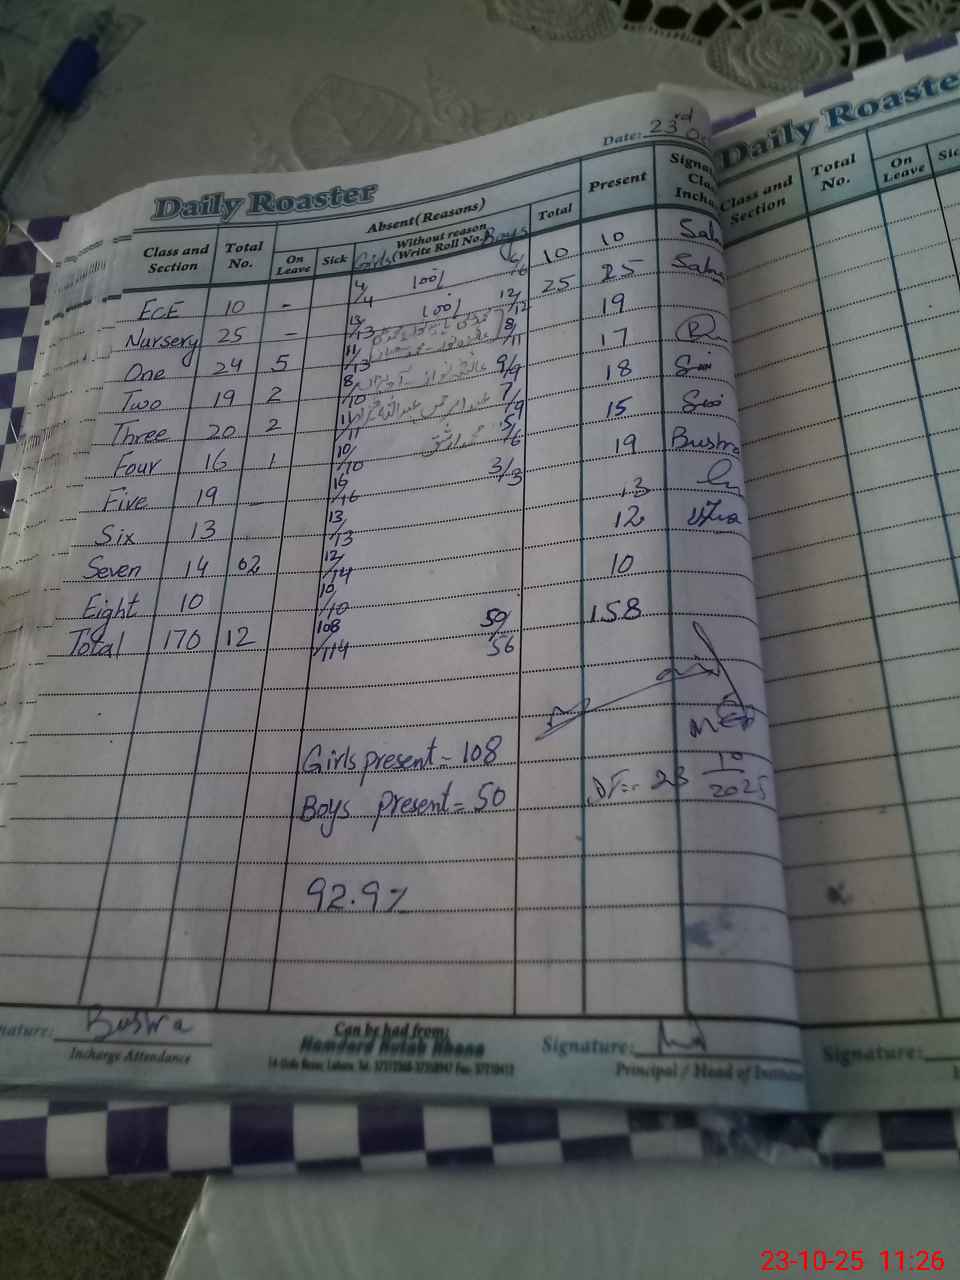 Daily Roaster
Date: 23rd Oc
Class and Section Total No. Absent (Reasons) Present
On Leave Sick Without reason (Write Roll No.) Total
Girls Boys
ECE 10 - 4/4 100% 6/6 10 10
Nursery 25 - 13/13 100% 12/12 25 25
One 24 5 11/13 8/11 19
Two 19 2 8/10 9/9 17
Three 20 2 11/11 7/9 18
Four 16 1 10/10 5/6 15
Five 19 - 16/16 3/3 19 Bushra
Six 13 13/13 13
Seven 14 02 12/14 12
Eight 10 10/10 10
Total 170 12 108/114 50/56 158
Girls present = 108
Boys present = 50
MEA
23 10/2025
92.9%
nature: Bushra
Incharge Attendance
Can be had from:
Hamdard Kutab Khana
Signature:
Principal / Head of
Daily Roaste
Class and Section Total No. On Leave Sic
Signature:
23-10-25 11:26